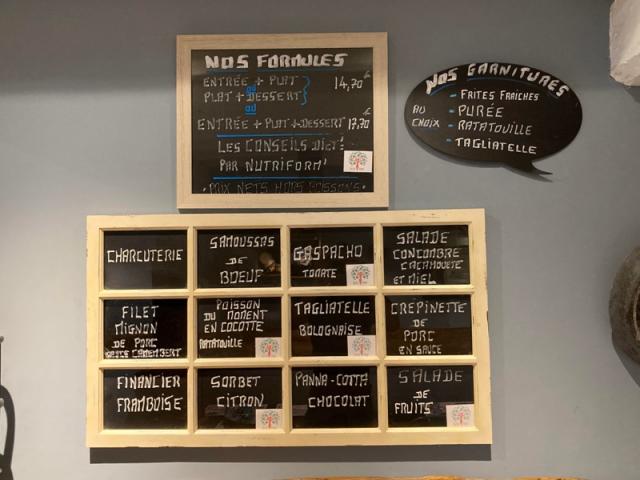 NOS FORMULES
ENTRÉE + PLAT
ou
PLAT + DESSERT
14,70 €
ou
ENTRÉE + PLAT + DESSERT 17,70 €
LES CONSEILS DIET!
PAR NUTRIFORM'
PRIX NETS HORS BOISSONS
NOS GARNITURES
AU CHOIX
- FRITES FRAICHES
- PURÉE
- RATATOUILLE
- TAGLIATELLE
CHARCUTERIE
SAMOUSSAS
DE
BOEUF
GASPACHO
TOMATE
SALADE
CONCOMBRE
CACAHOUETE
ET MIEL
FILET
MIGNON
DE PORC
SAUCE CAMEMBERT
POISSON
DU MOMENT
EN COCOTTE
RATATOUILLE
TAGLIATELLE
BOLOGNAISE
CRÉPINETTE
DE
PORC
EN SAUCE
FINANCIER
FRAMBOISE
SORBET
CITRON
PANNA-COTTA
CHOCOLAT
SALADE
DE
FRUITS